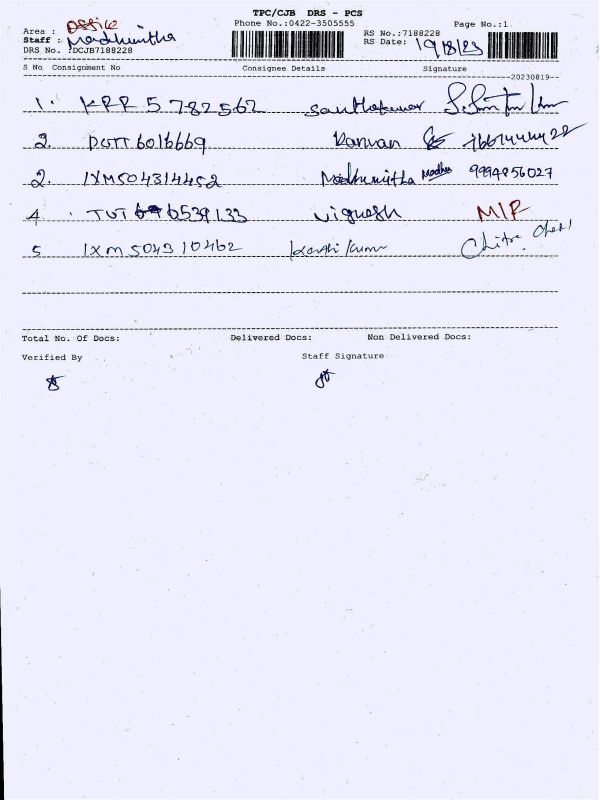 TPC/CJB DRS - PCS
Phone No.:0422-3505555 Page No.:1
Area : Office
Staff : Madhumitha RS No.:7188228
DRS No. :DCJB7188228 RS Date: 19/8/23
S No Consignment No Consignee Details Signature
20230819
1. KRR 5782562 Santhakumar
2. PGTT6016669 Kannan
2. IXM504314452 Madhumitha Madhu 9994856027
4. TUT 6539133 Vignesh MIR
5 IXM 504310462 Karthikumar Chitra
Total No. Of Docs: Delivered Docs: Non Delivered Docs:
Verified By Staff Signature